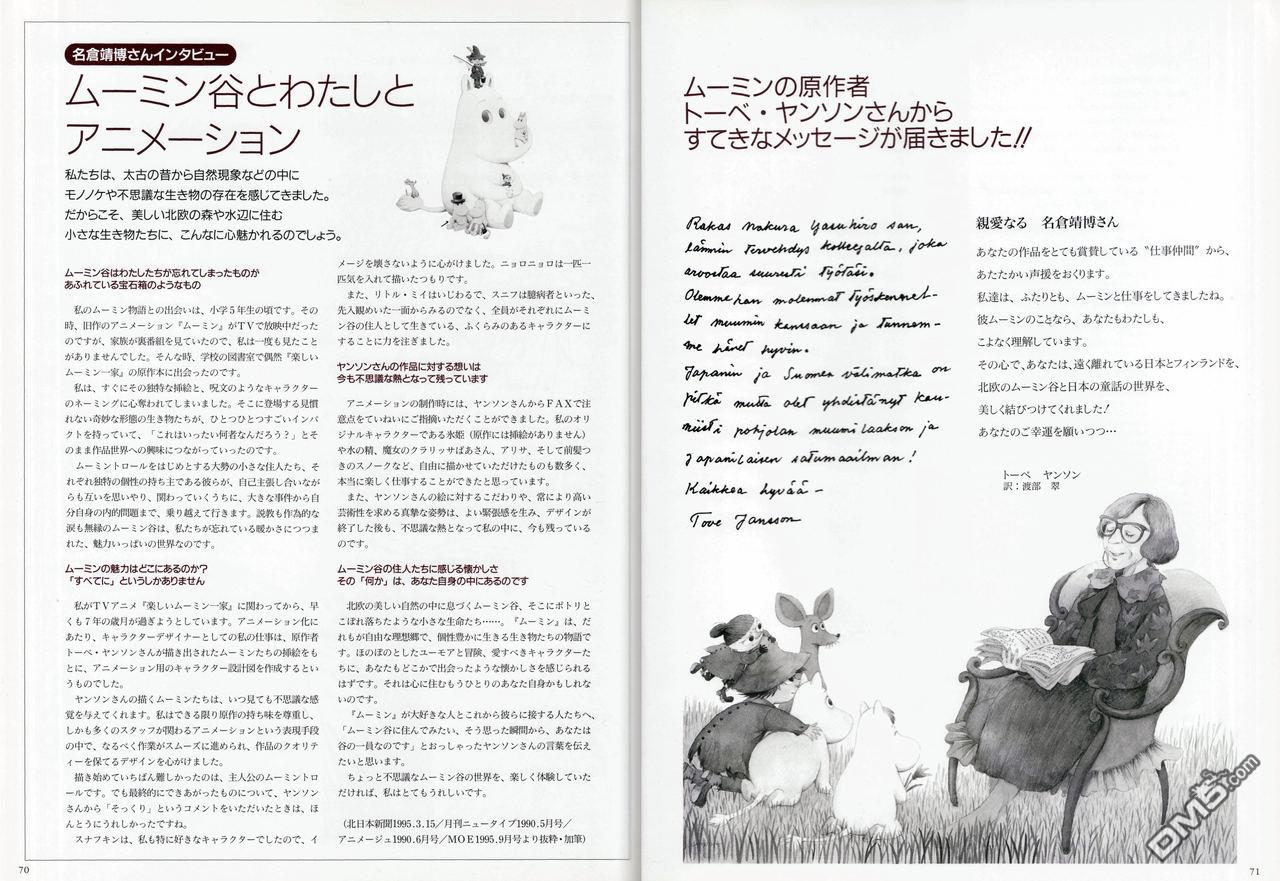 名倉靖博さんインタビュー
ムーミン谷とわたしと
アニメーション
私たちは、太古の昔から自然現象などの中に
モノノケや不思議な生き物の存在を感じてきました。
だからこそ、美しい北欧の森や水辺に住む
小さな生き物たちに、こんなに心魅かれるのでしょう。
ムーミン谷はわたしたちが忘れてしまったものが
あふれている宝石箱のようなもの
　私のムーミン物語との出会いは、小学5年生の頃です。その
時、旧作のアニメーション『ムーミン』がTVで放映中だった
のですが、家族が裏番組を見ていたので、私は一度も見たこと
がありませんでした。そんな時、学校の図書室で偶然『楽しい
ムーミン一家』の原作本に出会ったのです。
　私は、すぐにその独特な挿絵と、呪文のようなキャラクター
のネーミングに心奪われてしまいました。そこに登場する見慣
れない奇妙な形態の生き物たちが、ひとつひとつすごいインパ
クトを持っていて、「これはいったい何者なんだろう？」とそ
のまま作品世界への興味につながっていったのです。
　ムーミントロールをはじめとする大勢の小さな住人たち、そ
れぞれ独特の個性の持ち主である彼らが、自己主張し合いなが
らも互いを思いやり、関わっていくうちに、大きな事件から自
分自身の内的問題まで、乗り越えて行きます。説教も作為的な
涙も無縁のムーミン谷は、私たちが忘れている暖かさにつつま
れた、魅力いっぱいの世界なのです。
ムーミンの魅力はどこにあるのか？
「すべてに」というしかありません
　私がTVアニメ『楽しいムーミン一家』に関わってから、早
くも7年の歳月が過ぎようとしています。アニメーション化に
あたり、キャラクターデザイナーとしての私の仕事は、原作者
トーベ・ヤンソンさんが描き出されたムーミンたちの挿絵をも
とに、アニメーション用のキャラクター設計図を作成するとい
うものでした。
　ヤンソンさんの描くムーミンたちは、いつ見ても不思議な感
覚を与えてくれます。私はできる限り原作の持ち味を尊重し、
しかも多くのスタッフが関わるアニメーションという表現手段
の中で、なるべく作業がスムーズに進められ、作品のクオリテ
ィーを保てるデザインを心がけました。
　描き始めていちばん難しかったのは、主人公のムーミントロ
ールです。でも最終的にできあがったものについて、ヤンソン
さんから「そっくり」というコメントをいただいたときは、ほ
んとうにうれしかったですね。
　スナフキンは、私も特に好きなキャラクターでしたので、イ
メージを壊さないように心がけました。ニョロニョロは一匹一
匹気を入れて描いたつもりです。
　また、リトル・ミイはいじわるで、スニフは臆病者といった、
先入観めいた一面からみるのでなく、全員がそれぞれにムーミ
ン谷の住人として生きている、ふくらみのあるキャラクターに
することに力を注ぎました。
ヤンソンさんの作品に対する想いは
今も不思議な熱となって残っています
　アニメーションの制作時には、ヤンソンさんからFAXで注
意点をていねいにご指摘いただくことができました。私のオリ
ジナルキャラクターである氷姫（原作には挿絵がありません）
や水の精、魔女のクラリッサばあさん、アリサ、そして前髪つ
きのスノークなど、自由に描かせていただけたものも数多く、
本当に楽しく仕事することができたと思っています。
　また、ヤンソンさんの絵に対するこだわりや、常により高い
芸術性を求める真摯な姿勢は、よい緊張感を生み、デザインが
終了した後も、不思議な熱となって私の中に、今も残っている
のです。
ムーミン谷の住人たちに感じる懐かしさ
その「何か」は、あなた自身の中にあるのです
　北欧の美しい自然の中に息づくムーミン谷、そこにポトリと
こぼれ落ちたような小さな生命たち……。『ムーミン』は、だ
れもが自由な理想郷で、個性豊かに生きる生き物たちの物語で
す。ほのぼのとしたユーモアと冒険、愛すべきキャラクターた
ちに、あなたもどこかで出会ったような懐かしさを感じられる
はずです。それは心に住むもうひとりのあなた自身かもしれな
いのです。
　『ムーミン』が大好きな人とこれから彼らに接する人たちへ、
「ムーミン谷に住んでみたい、そう思った瞬間から、あなたは
谷の一員なのです」とおっしゃったヤンソンさんの言葉を伝え
たいと思います。
　ちょっと不思議なムーミン谷の世界を、楽しく体験していた
だければ、私はとてもうれしいです。
（北日本新聞1995.3.15／月刊ニュータイプ1990.5月号／
アニメージュ1990.6月号／MOE1995.9月号より抜粋・加筆）
70
ムーミンの原作者
トーベ・ヤンソンさんから
すてきなメッセージが届きました!!
Rakas Nakura Yasuhiro san,
lämmin tervehdys kollegalta, joka
arvostaa suuresti työtäsi.
Olemmehan molemmat työskennel-
let muumin kanssaan ja tunnem-
me hänet hyvin.
Japanin ja Suomen välimatka on
pitkä mutta olet yhdistänyt kau-
niisti pohjolan muumilaakson ja
Japanilaisen satumaailman!
Kaikkea hyvää –
Tove Jansson
親愛なる　名倉靖博さん
あなたの作品をとても賞賛している〝仕事仲間〟から、
あたたかい声援をおくります。
私達は、ふたりとも、ムーミンと仕事をしてきましたね。
彼ムーミンのことなら、あなたもわたしも、
こよなく理解しています。
その心で、あなたは、遠く離れている日本とフィンランドを、
北欧のムーミン谷と日本の童話の世界を、
美しく結びつけてくれました！
あなたのご幸運を願いつつ…
トーベ　ヤンソン
訳：渡部　翠
71
DMB.com